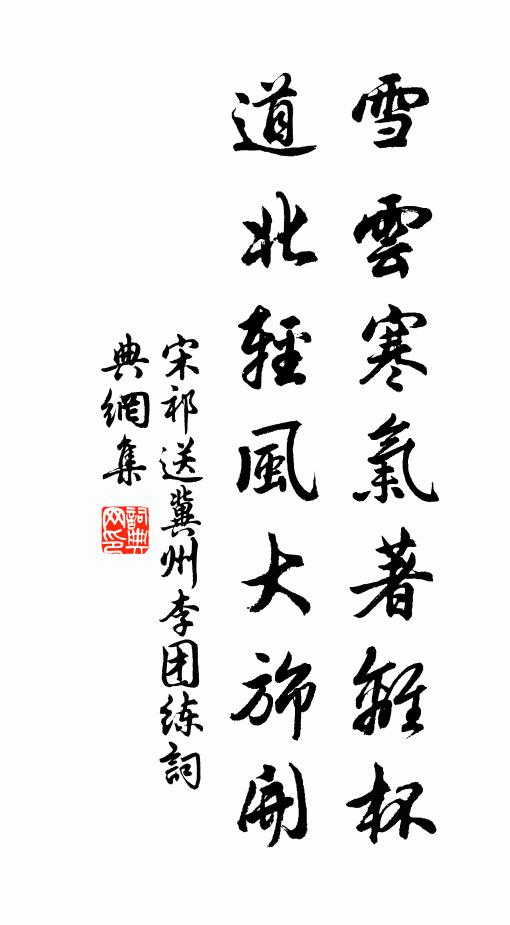 雪雲寒氣著離杯
道北輕風大旆開
宋祁送冀州李团练詞
典網集
詞典网印